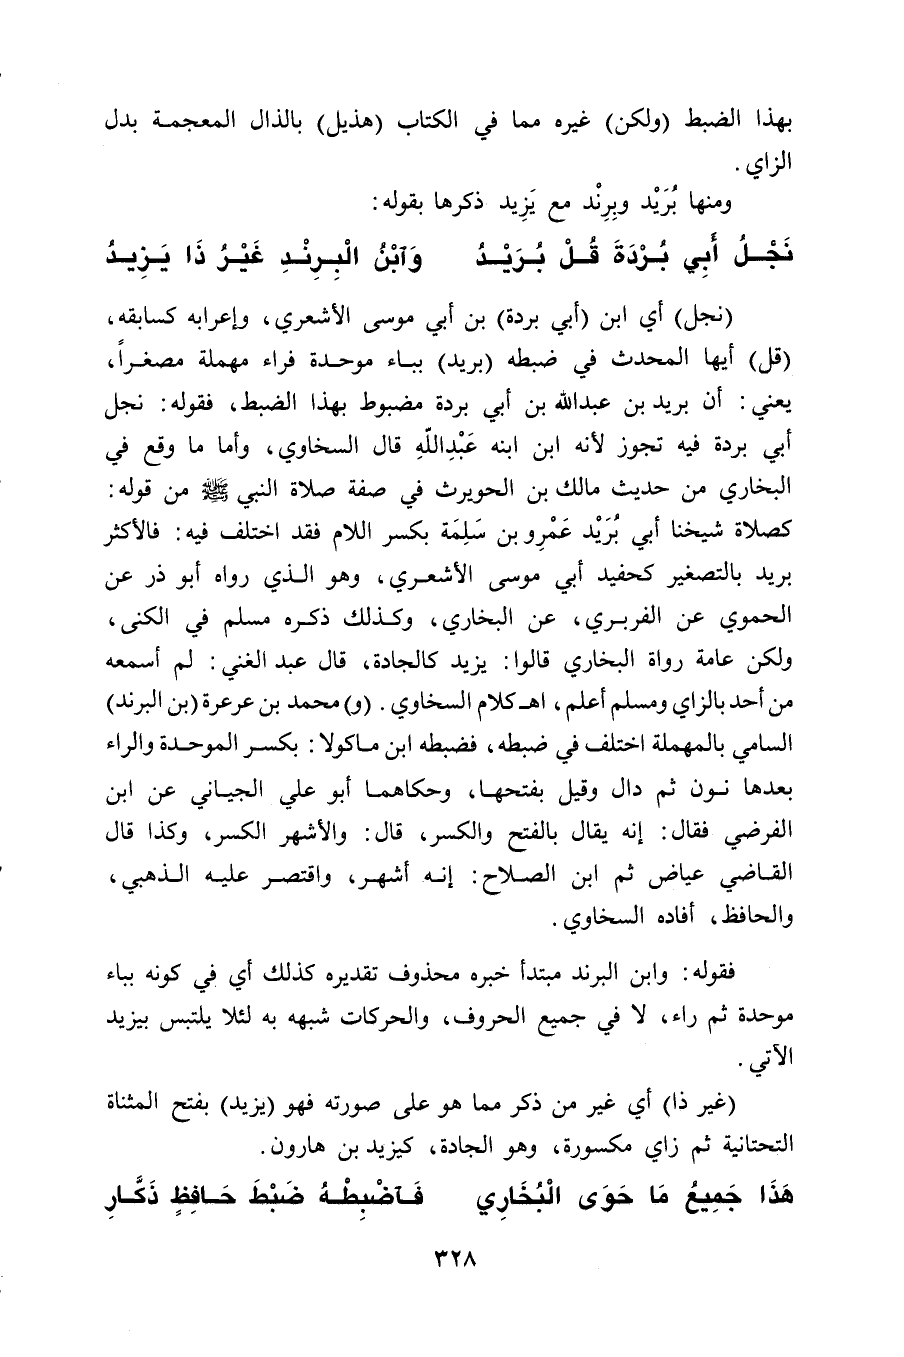 بهذا الضبط (ولكن) غيره مما في الكتاب (هذيل) بالذال المعجمة بدل
الزاي .
ومنها بُرَيْد وبِرِنْد مع يَزِيد ذكرها بقوله:
نَجْلُ أَبِي بُرْدَةَ قُلْ بُرَيْدُ وَآبْنُ الْبِرِنْدِ غَيْرُ ذَا يَزِيدُ
(نجل) أي ابن (أبي بردة) بن أبي موسى الأشعري، وإعرابه كسابقه،
(قل) أيها المحدث في ضبطه (بريد) بباء موحدة فراء مهملة مصغراً،
يعني: أن بريد بن عبدالله بن أبي بردة مضبوط بهذا الضبط، فقوله: نجل
أبي بردة فيه تجوز لأنه ابن ابنه عَبْدِاللَّهِ قال السخاوي، وأما ما وقع في
البخاري من حديث مالك بن الحويرث في صفة صلاة النبي ﷺ من قوله:
كصلاة شيخنا أبي بُرَيْد عَمْرِو بن سَلِمَة بكسر اللام فقد اختلف فيه: فالأكثر
بريد بالتصغير كحفيد أبي موسى الأشعري، وهو الذي رواه أبو ذر عن
الحموي عن الفربري، عن البخاري، وكذلك ذكره مسلم في الكنى،
ولكن عامة رواة البخاري قالوا: يزيد كالجادة، قال عبد الغني: لم أسمعه
من أحد بالزاي ومسلم أعلم، اهـ كلام السخاوي. (و) محمد بن عرعرة (بن البرند)
السامي بالمهملة اختلف في ضبطه، فضبطه ابن ماكولا: بكسر الموحدة والراء
بعدها نون ثم دال وقيل بفتحها، وحكاهما أبو علي الجياني عن ابن
الفرضي فقال: إنه يقال بالفتح والكسر، قال: والأشهر الكسر، وكذا قال
القاضي عياض ثم ابن الصلاح: إنه أشهر، واقتصر عليه الذهبي،
والحافظ، أفاده السخاوي.
فقوله: وابن البرند مبتدأ خبره محذوف تقديره كذلك أي في كونه بباء
موحدة ثم راء، لا في جميع الحروف، والحركات شبهه به لئلا يلتبس بيزيد
الآتي.
(غير ذا) أي غير من ذكر مما هو على صورته فهو (يزيد) بفتح المثناة
التحتانية ثم زاي مكسورة، وهو الجادة، كيزيد بن هارون.
هَذَا جَمِيعُ مَا حَوَى الْبُخَارِي فَآضْبِطْهُ ضَبْطَ حَافِظٍ ذَكَّارِ
٣٢٨